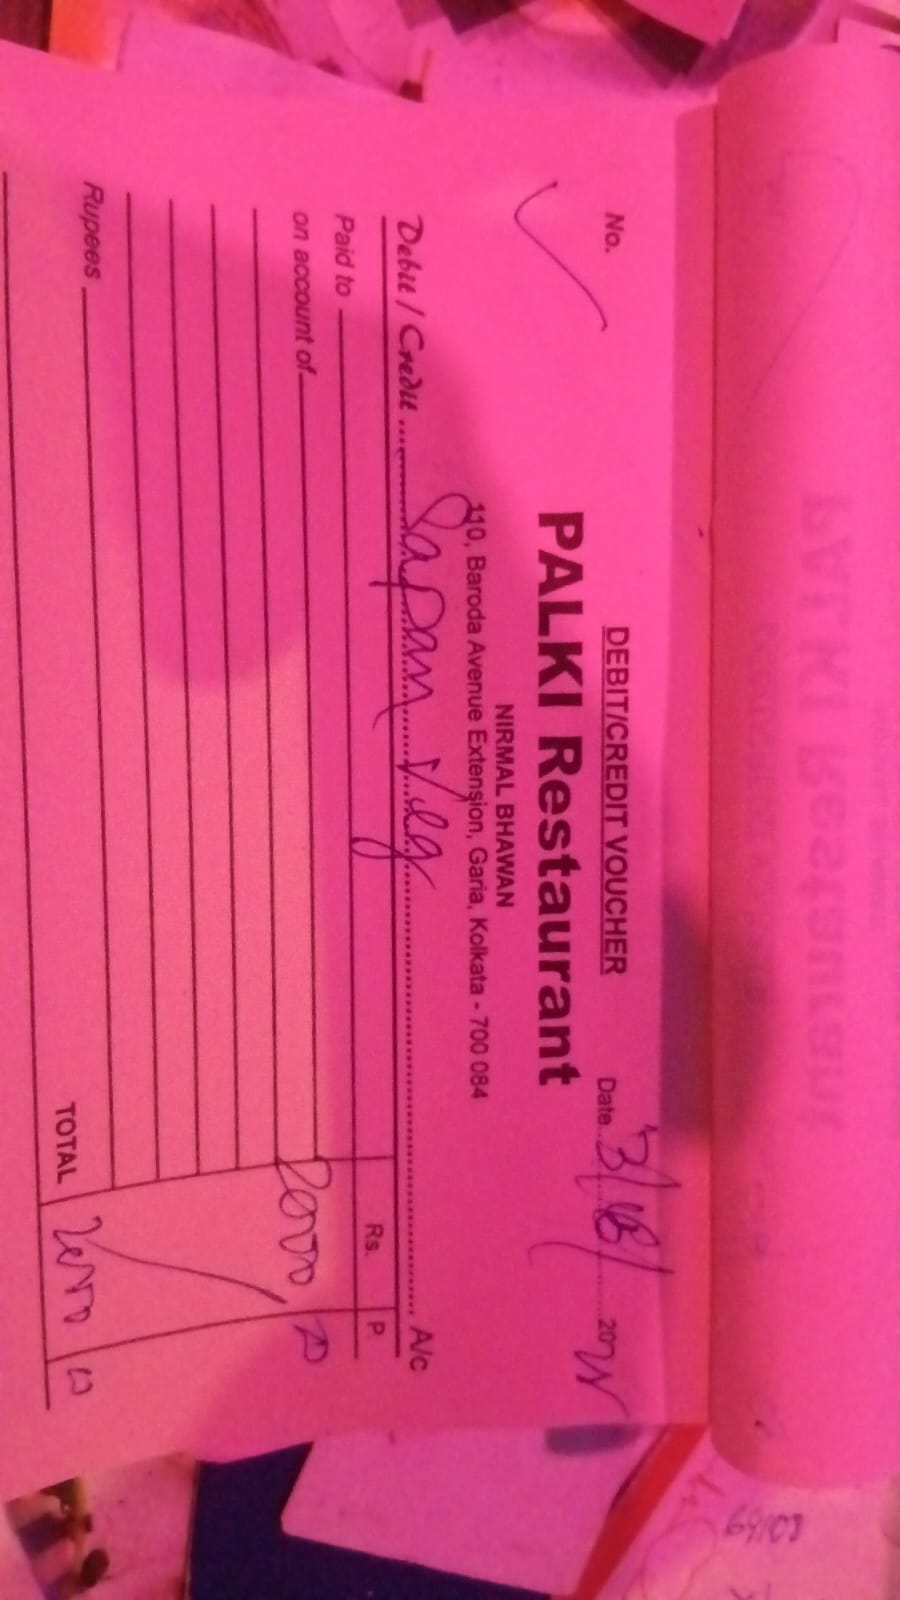 DEBIT/CREDIT VOUCHER
No. Date 3/8/ 20
PALKI Restaurant
NIRMAL BHAWAN
110, Baroda Avenue Extension, Garia, Kolkata - 700 084
Debit / Credit Sapan A/c
Paid to Rs. P
on account of
TOTAL
Rupees
PALKI Restaurant